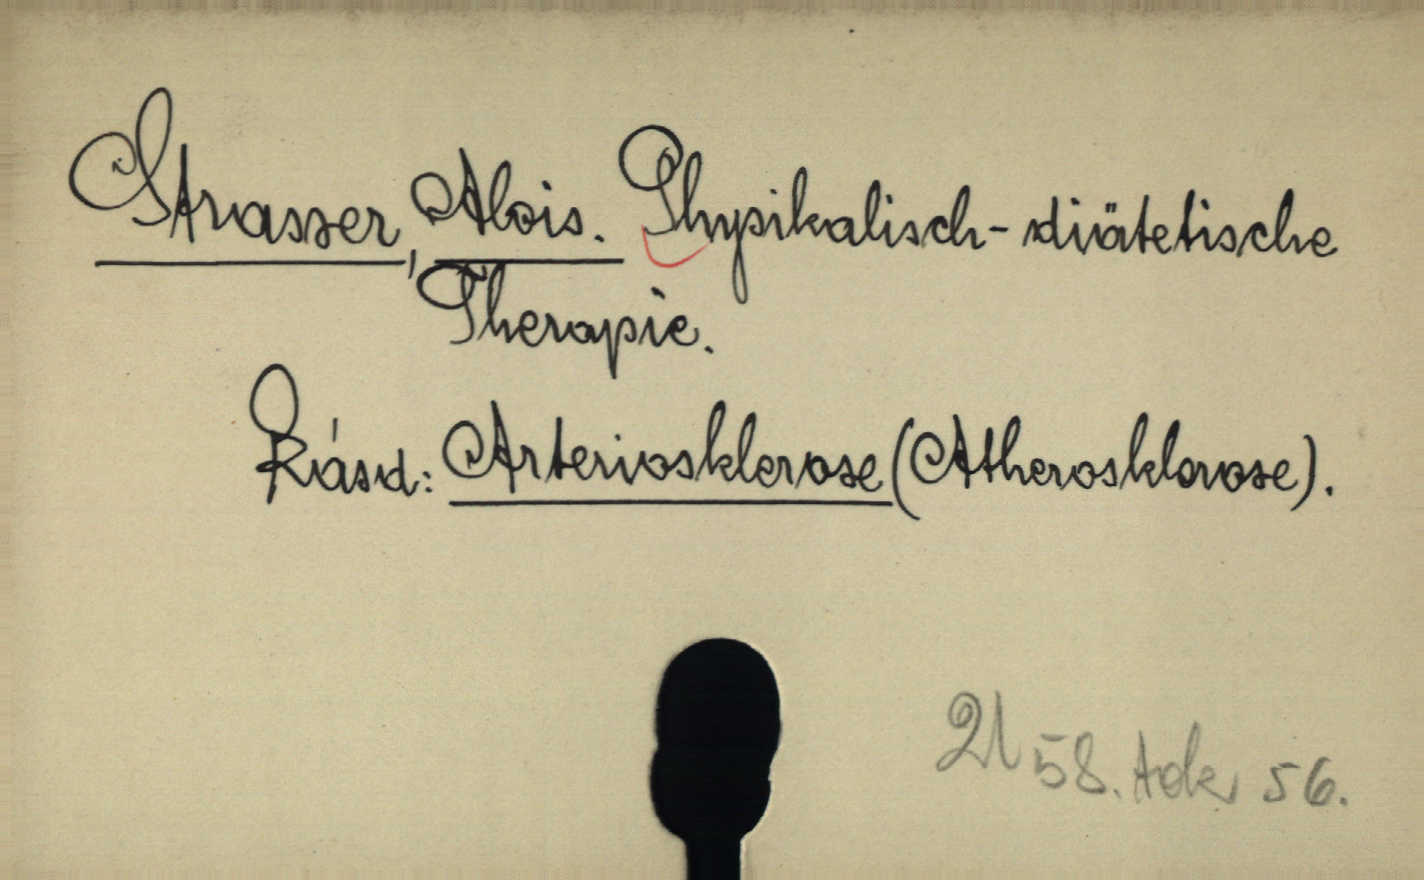 Strasser, Alois. Physikalisch-diätetische
Therapie.
Lásd: Arteriosklerose (Atherosklerose).
58. 56.